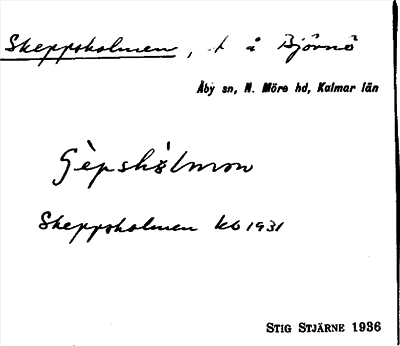 Skeppsholmen, t å Björnö
Åby sn, N. Möre hd, Kalmar län
Skeppsholmen kb 1931
STIG STJÄRNE 1936